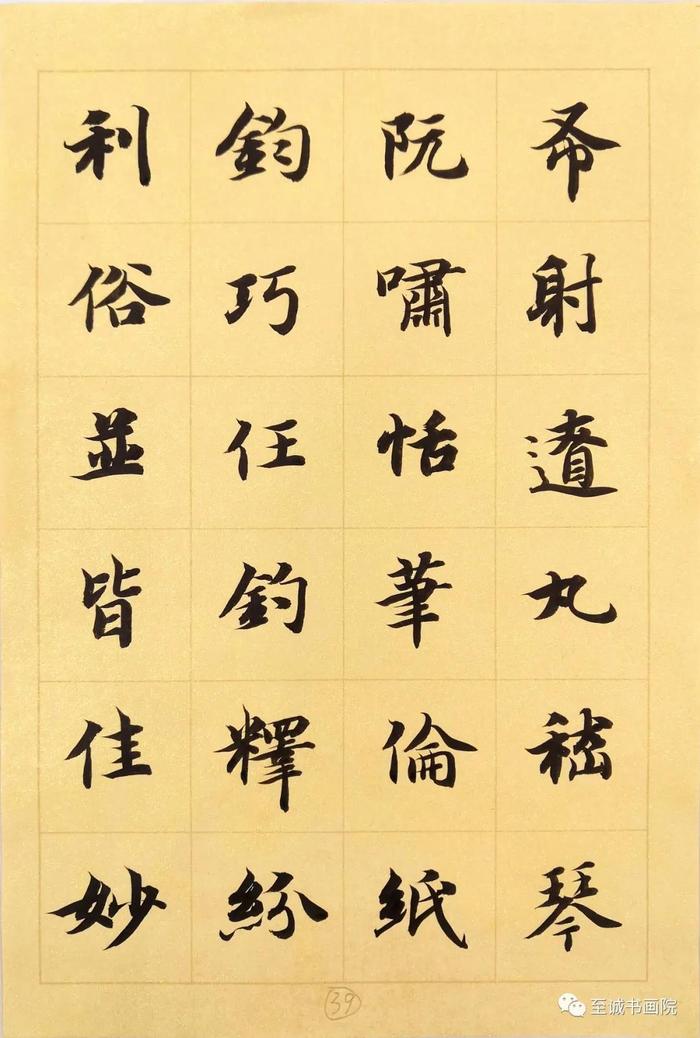 布射遼丸嵇琴
阮嘯恬筆倫紙
鈞巧任釣釋紛
利俗並皆佳妙
39
至诚书画院